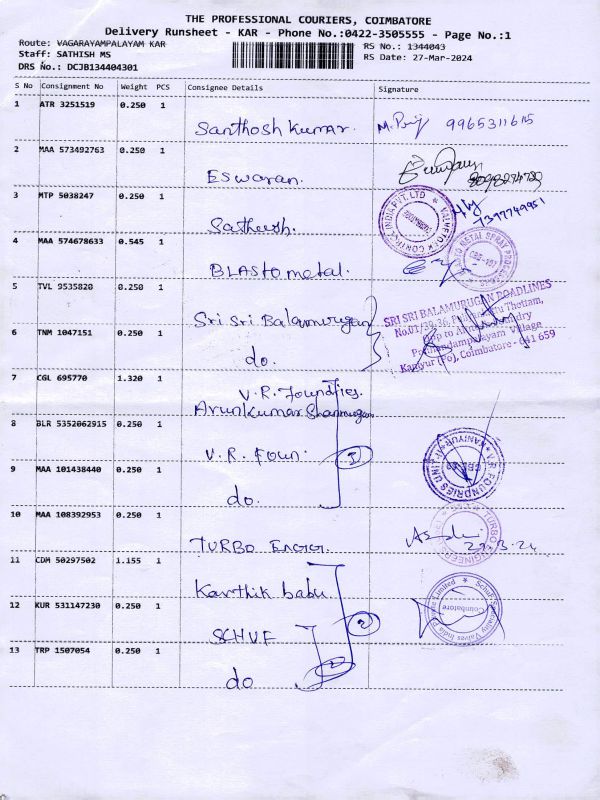 THE PROFESSIONAL COURIERS, COIMBATORE
Delivery Runsheet - KAR - Phone No.:0422-3505555 - Page No.:1
Route: VAGARAYAMPALAYAM KAR
RS No.: 1344043
Staff: SATHISH MS
RS Date: 27-Mar-2024
DRS No.: DCJB134404301
S No Consignment No Weight PCS Consignee Details Signature
1 ATR 3251519 0.250 1
Santhosh Kumar. 9965311615
2 MAA 573492763 0.250 1
Eswaran.
3 MTP 5038247 0.250 1
Satheesh. 7397749951
4 MAA 574678633 0.545 1
BLASTO metal.
5 TVL 9535820 0.250 1
Sri Sri Balamurugan
SRI SRI BALAMURUGAN ROADLINES
Thottam,
Village
Kaniyur (Po), Coimbatore - 641 659
6 TNM 1047151 0.250 1
do.
7 CGL 695770 1.320 1
V.R. Foundries.
Arunkumar Shanmugam
8 BLR 5352062915 0.250 1
V.R. Foun.
9 MAA 101438440 0.250 1
do.
V.R. FOUNDRIES UNIT
KANIYUR
10 MAA 108392953 0.250 1
TURBO
TURBO ENGINEERS
11 CDM 50297502 1.155 1
Karthik babu.
12 KUR 531147230 0.250 1
SCHUF
Coimbatore
13 TRP 1507054 0.250 1
do